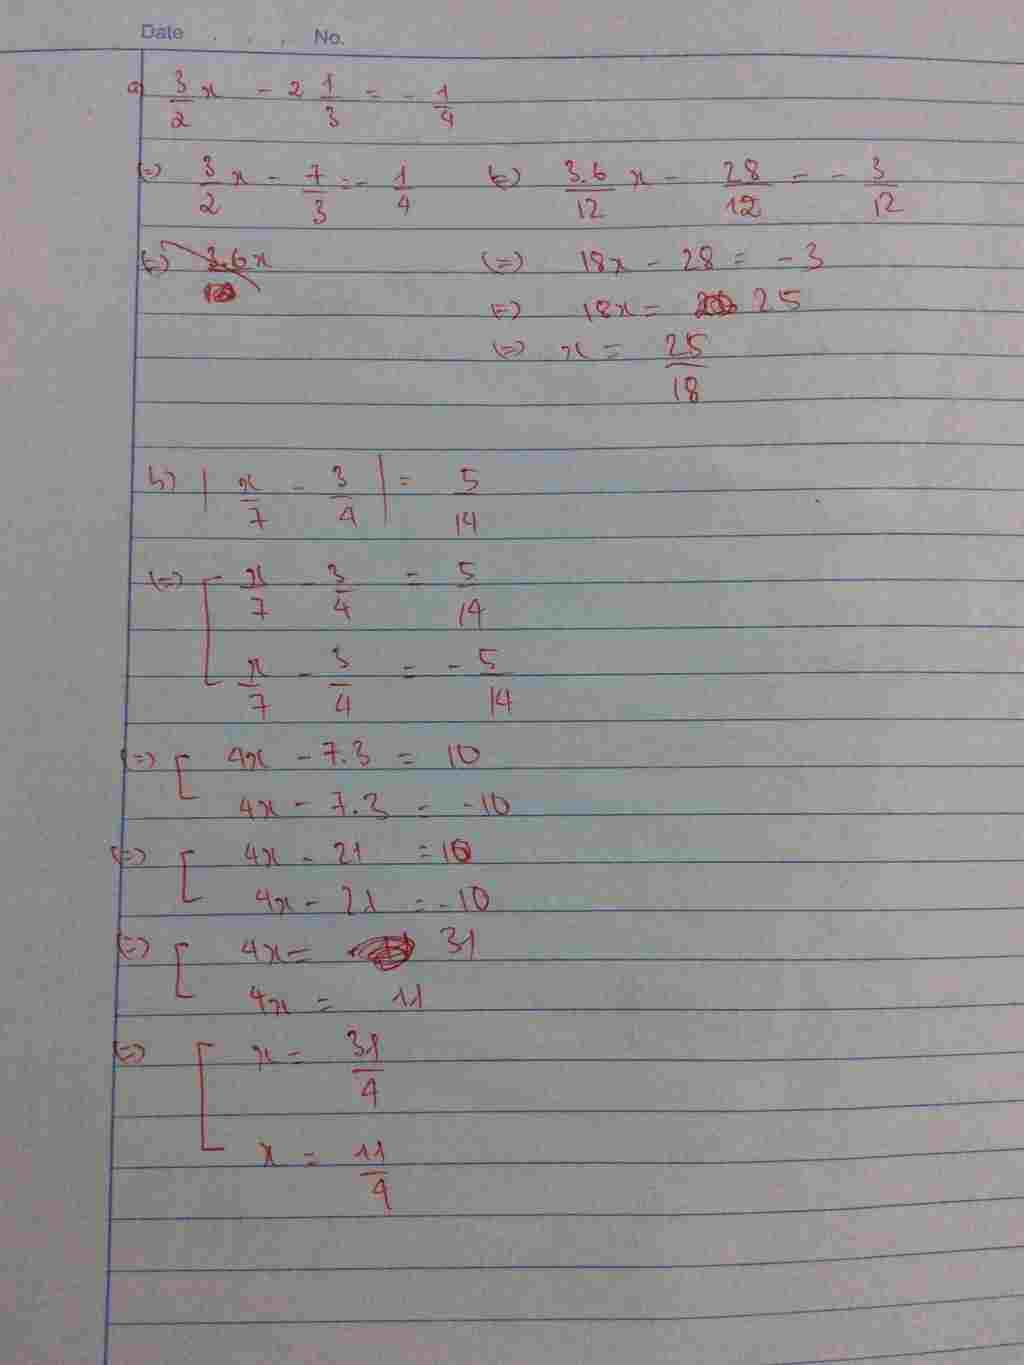 Date . . . No.
a) 3/2 x - 2 1/3 = - 1/4
(=) 3/2 x - 7/3 = - 1/4
(=) 3.6/12 x - 28/12 = - 3/12
(=) 3.6x
(=) 18x - 28 = -3
(=) 18x = 25
(=) x = 25/18
b) | x/7 - 3/4 | = 5/14
(=) [ x/7 - 3/4 = 5/14
x/7 - 3/4 = - 5/14
(=) [ 4x - 7.3 = 10
4x - 7.3 = -10
(=) [ 4x - 21 = 10
4x - 21 = -10
(=) [ 4x = 31
4x = 11
(=) [ x = 31/4
x = 11/4